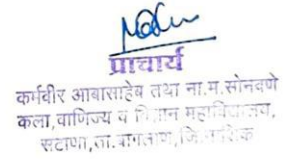 प्राचार्य
कर्मवीर आबासाहेब तथा ना.म.सोनवणे
कला,वाणिज्य व विज्ञान महाविद्यालय,
सटाणा,ता.बागलाण,जि.नाशिक